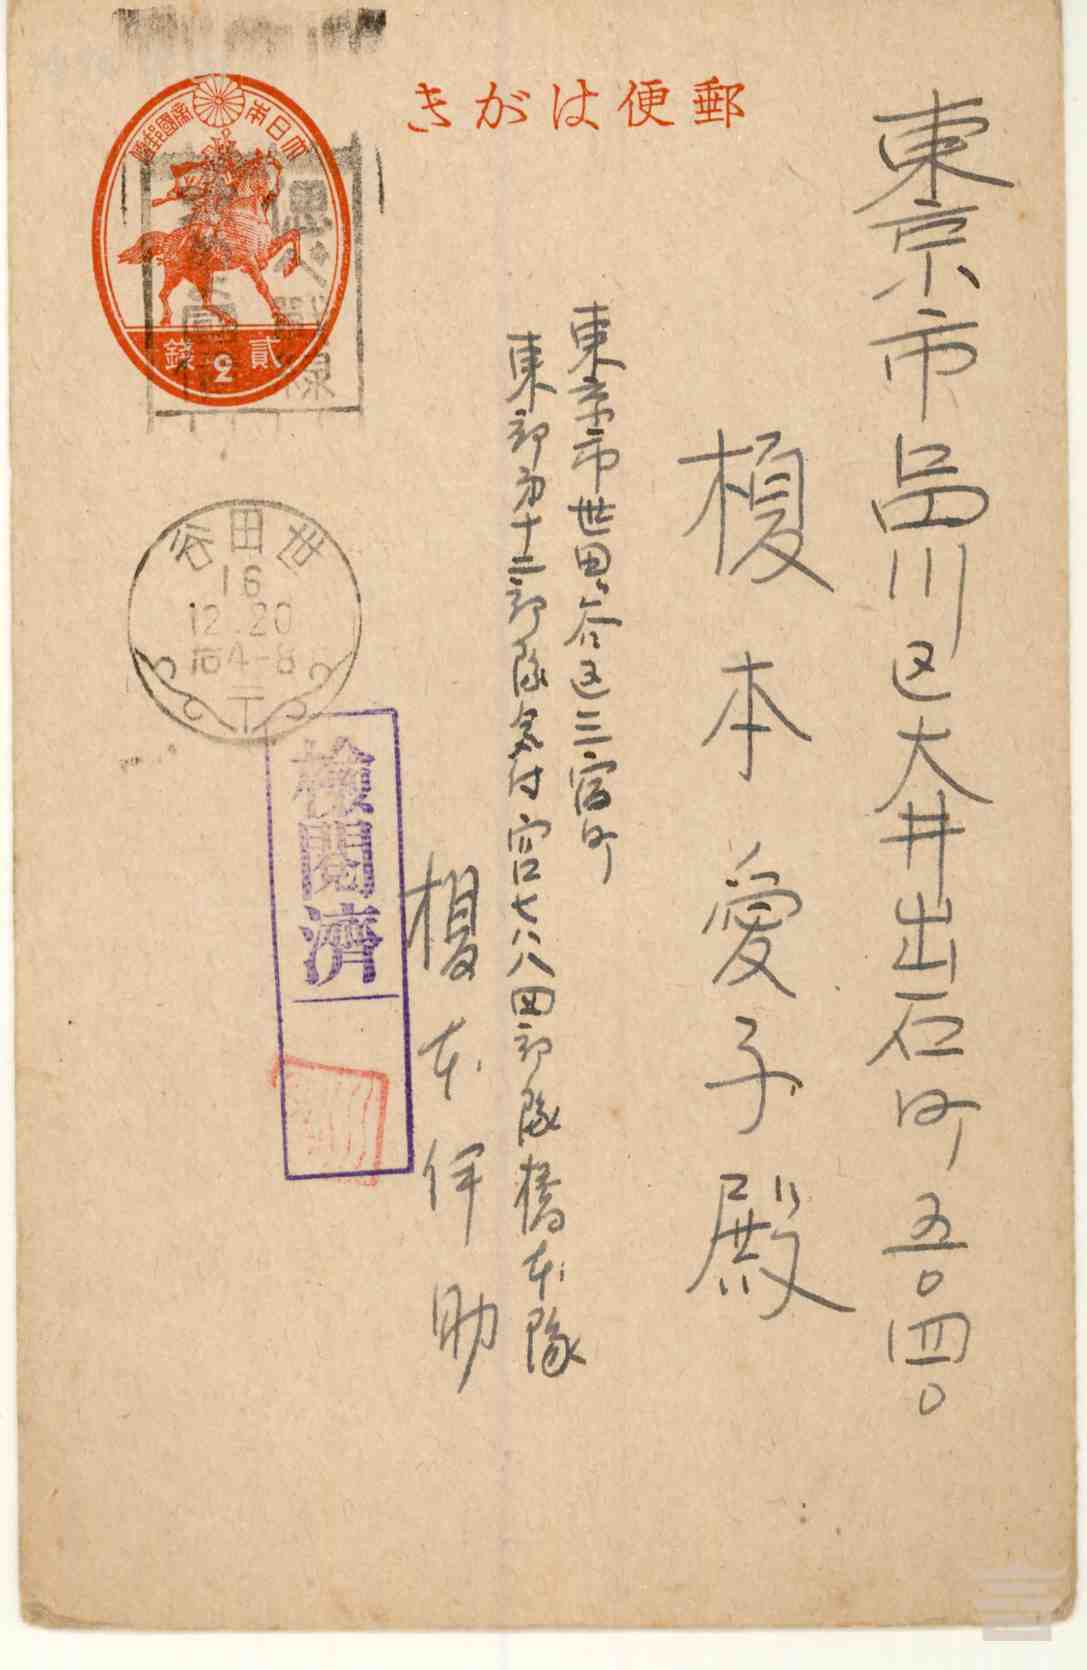 郵便はがき
東京市品川区大井出石町五〇四〇
榎本愛子殿
東京市世田ヶ谷区三宿町
東部第十二部隊気付宮七八八四部隊橋本隊
榎本伊助
大日本帝國郵便
貳錢
2
思へ戰線
世田谷
16
12.20
后4-8
檢閲濟